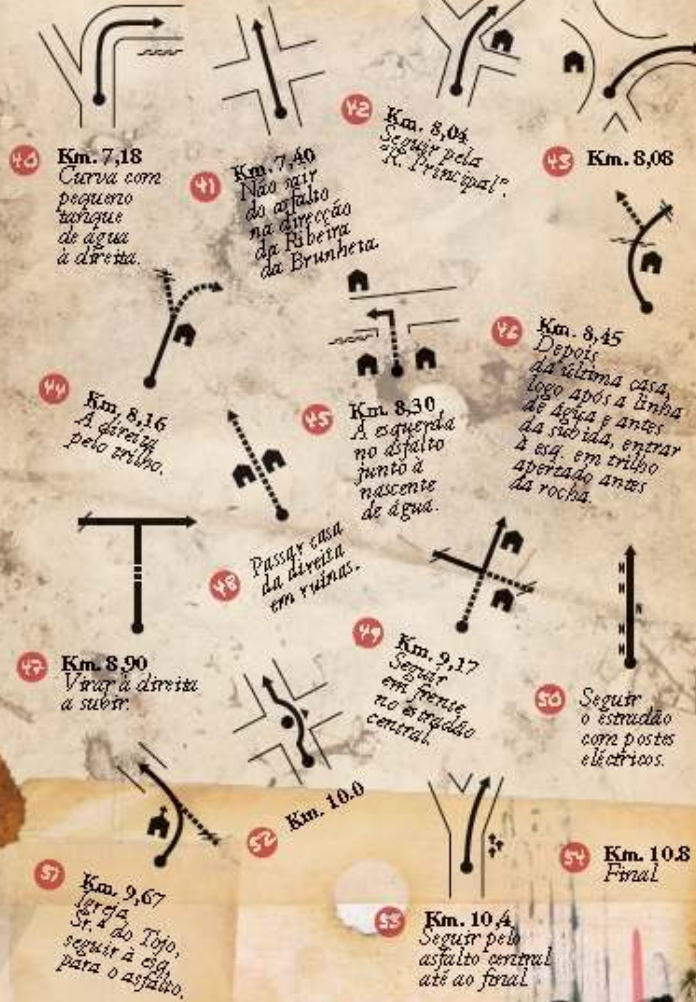 40
Km. 7,18
Curva com
pequeno
tanque
de água
à direita.
41
Km. 7,40
Não sair
do asfalto
na direcção
da Ribeira
da Brunheta.
42
Km. 8,04
Seguir pela
"R. Principal".
43
Km. 8,08
44
Km. 8,16
À direita
pelo trilho.
45
Km. 8,30
À esquerda
no asfalto
junto à
nascente
de água.
46
Km. 8,45
Depois
da última casa,
logo após a linha
de água e antes
da subida, entrar
à esq. em trilho
apertado antes
da rocha.
47
Km. 8,90
Virar à direita
a subir.
48
Passar casa
da direita
em ruínas.
49
Km. 9,17
Seguir
em frente
no estradão
central.
50
Seguir
o estradão
com postes
eléctricos.
51
Km. 9,67
Igreja
Sr.ª do Tojo,
seguir à esq.
para o asfalto.
52
Km. 10.0
53
Km. 10,4
Seguir pelo
asfalto central
até ao final
54
Km. 10.8
Final